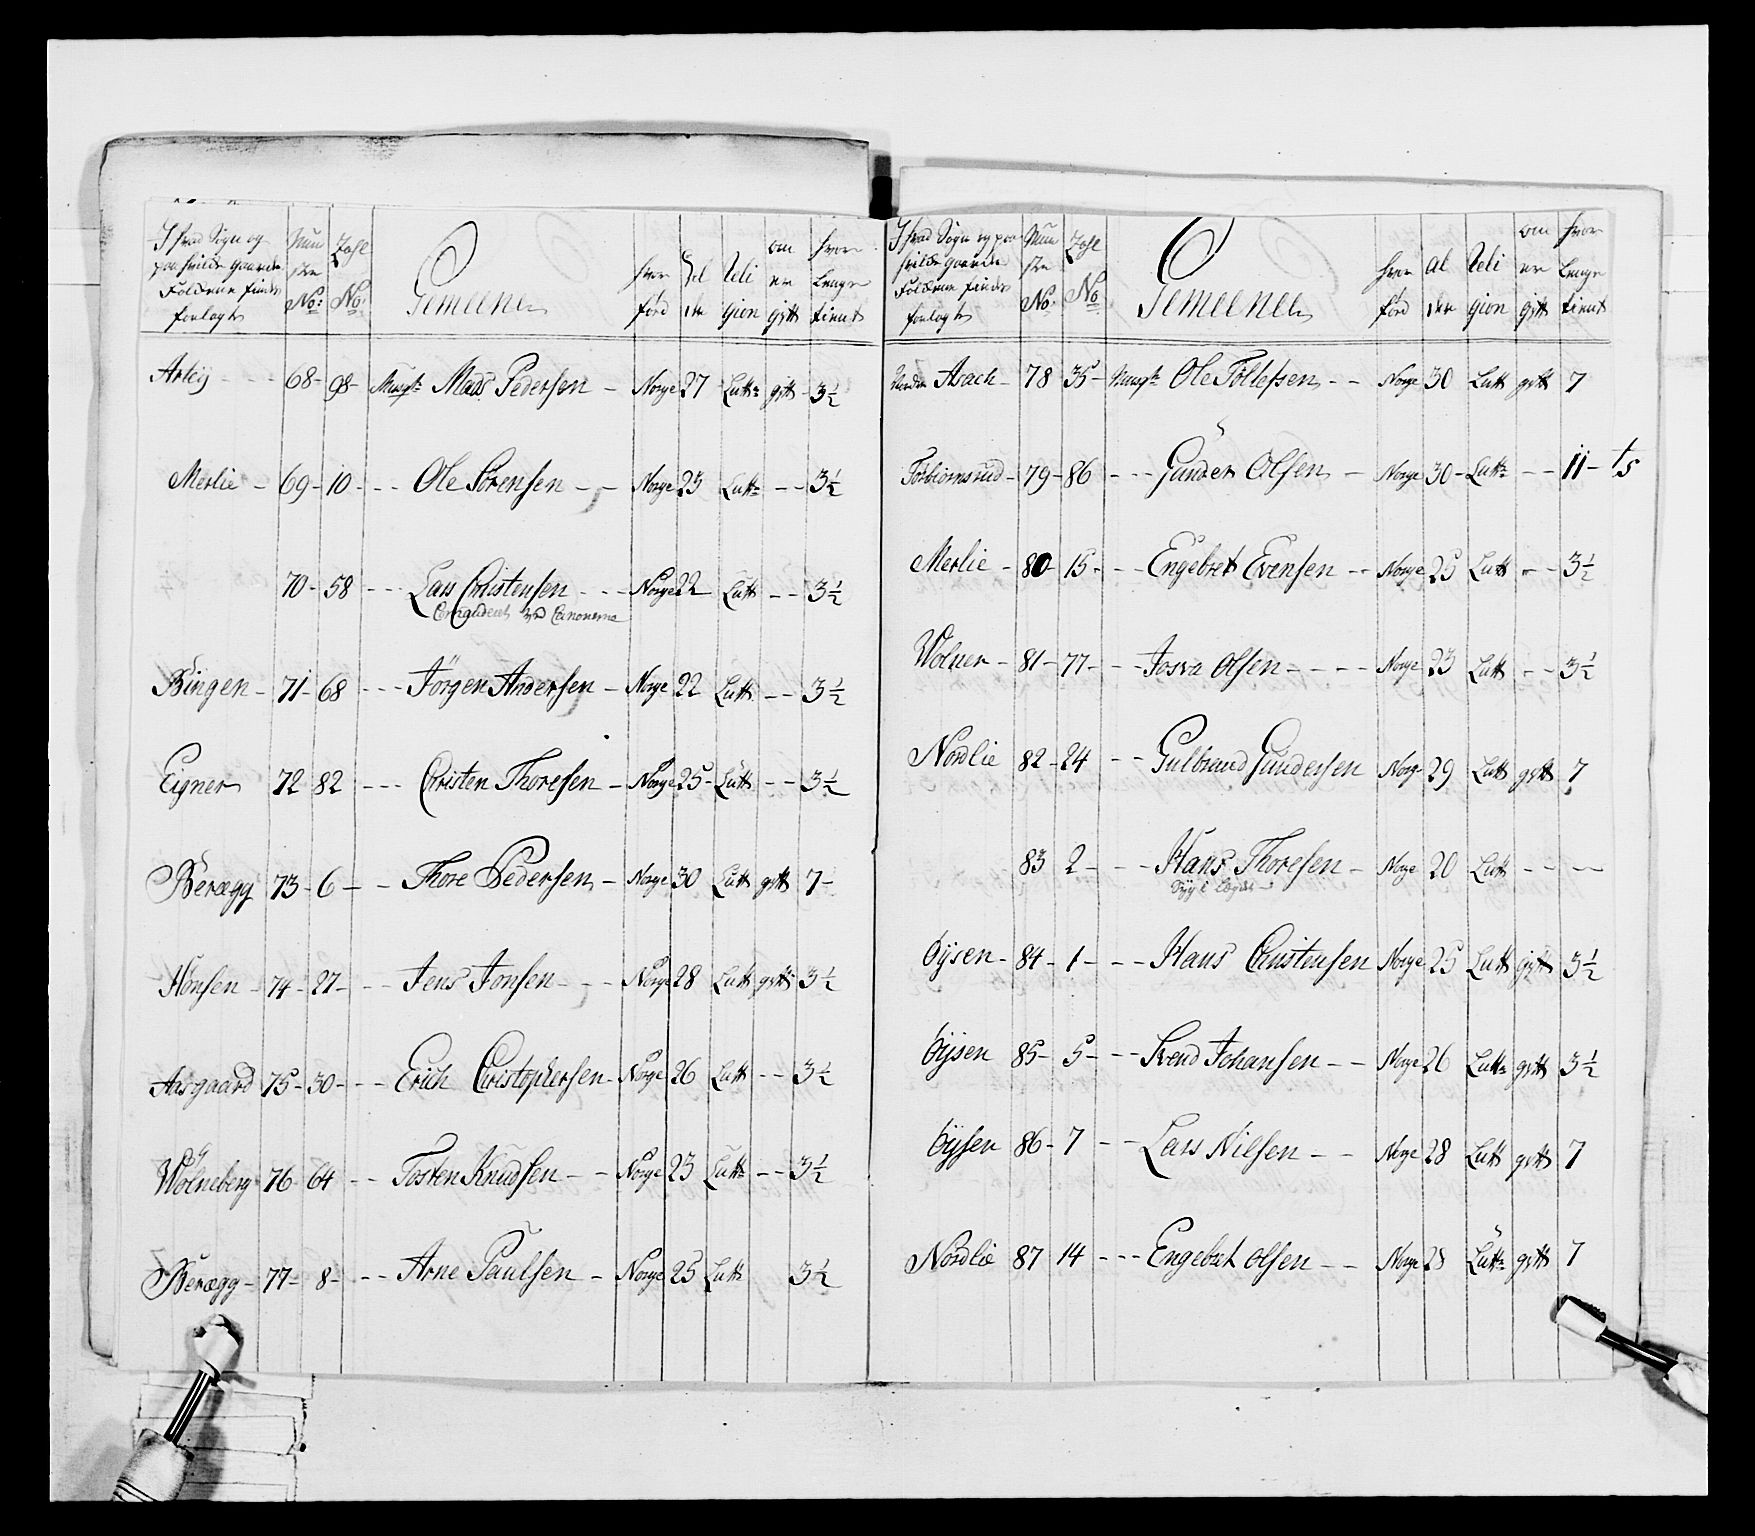 I hvad Sogn og paa hvilke Gaarde Folckene findes forlagt | Mun stre No: | Zahl No: | Gemeene | hvor fød | Al der | Reli gion | om er gift | hvor lenge tient
Arley - - - 68 - 98 - Musqt: Mads Pedersen - Norge 27 Lutt: gift - 3½
Merlie - 69 - 10 - - - Ole Sörensen - - Norge 23 Lutt: - - 3½
70 - 58 - - - Lars Christensen - - - Norge 22 Lutt - - 3½
ved Canonerne
Bingen - 71 - 68 - - - Jörgen Andersen - Norge 22 Lutt - - 3½
Eigner 72 82 - - - Christen Thoresen - Norge 25 - Lutt - - 3½
Beraegg 73 - 6 - - Thore Pedersen - Norge 30 Lutt gift 7 -
Hönsen - 74 - 27 - - - Jens Jonsen - - - Norge 28 Lutt gift 3½
Aasgaard 75 - 30 - - - Erich Christophersen - Norge 26 Lutt - - 3½
Wölneberg 76 - 64 - - Tosten Knudsen - - Norge 23 Lutt: - - 3½
Beraegg - 77 - 8 - - - Arne Paulsen - Norge 25 Lutt 3½
I hvad Sogn og paa hvilke Gaarde Folckene findes forlagt | Mun stre No: | Zahl No | Gemeene | hvor fød | Al der | Reli gion | om er gift | hvor lenge tient
Neder Asach - 78 35 - Musqt: Ole Tollefsen - - Norge 30 Lutt gift 7
Torbiornsrud - 79 - 86 - - - Gunder Olsen - Norge 30 - Lutt: - - 11 - ts
Merlie - 80 - 15 - - - Engebret Evensen - - Norge 25 Lutt - - 3½
Wolner - 81 - 77 - - - Josva Olsen - - - - Norge 23 Lutt - - 3½
Nordlie 82 - 24 - - Gulbrand Gundersen Norge 29 Lutt gift 7
83 2 - - - Hans Thoresen - Norge 20 Lutt - - - -
Syg i
Öÿsen - 84 - 1 - - - Hans Christensen Norge 25 Lutt gift 3½
Öÿsen 85 - 5 - - - Svend Johansen - - Norge 26 Lutt: gift 3½
Öÿsen 86 - 7 - - Lars Nilsen - - Norge 28 Lutt gift 7
Nordlie 87 14 - - - Engebret Olsen - - Norge 28 Lutt: gift 7